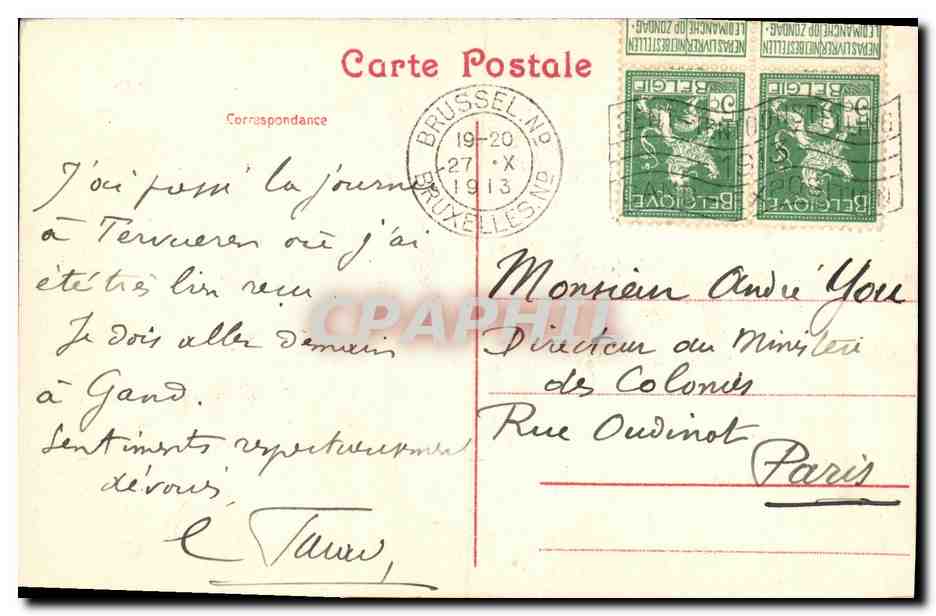 Carte Postale
Correspondance
BRUSSEL.Nº
19-20
27 • X
1913
BRUXELLES.Nº
NE PAS LIVRER NIET BESTELLEN
LE DIMANCHE OP ZONDAG
NE PAS LIVRER NIET BESTELLEN
LE DIMANCHE OP ZONDAG
5c
BELGIE
BELGIQUE
5c
BELGIE
BELGIQUE
J'ai passé la journée
à Tervueren où j'ai
été très bien reçu.
Je dois aller demain
à Gand.
Sentiments respectueusement
dévoués,
Monsieur André You
Directeur au Ministère
des Colonies
Rue Oudinot
Paris
CPAPHIL